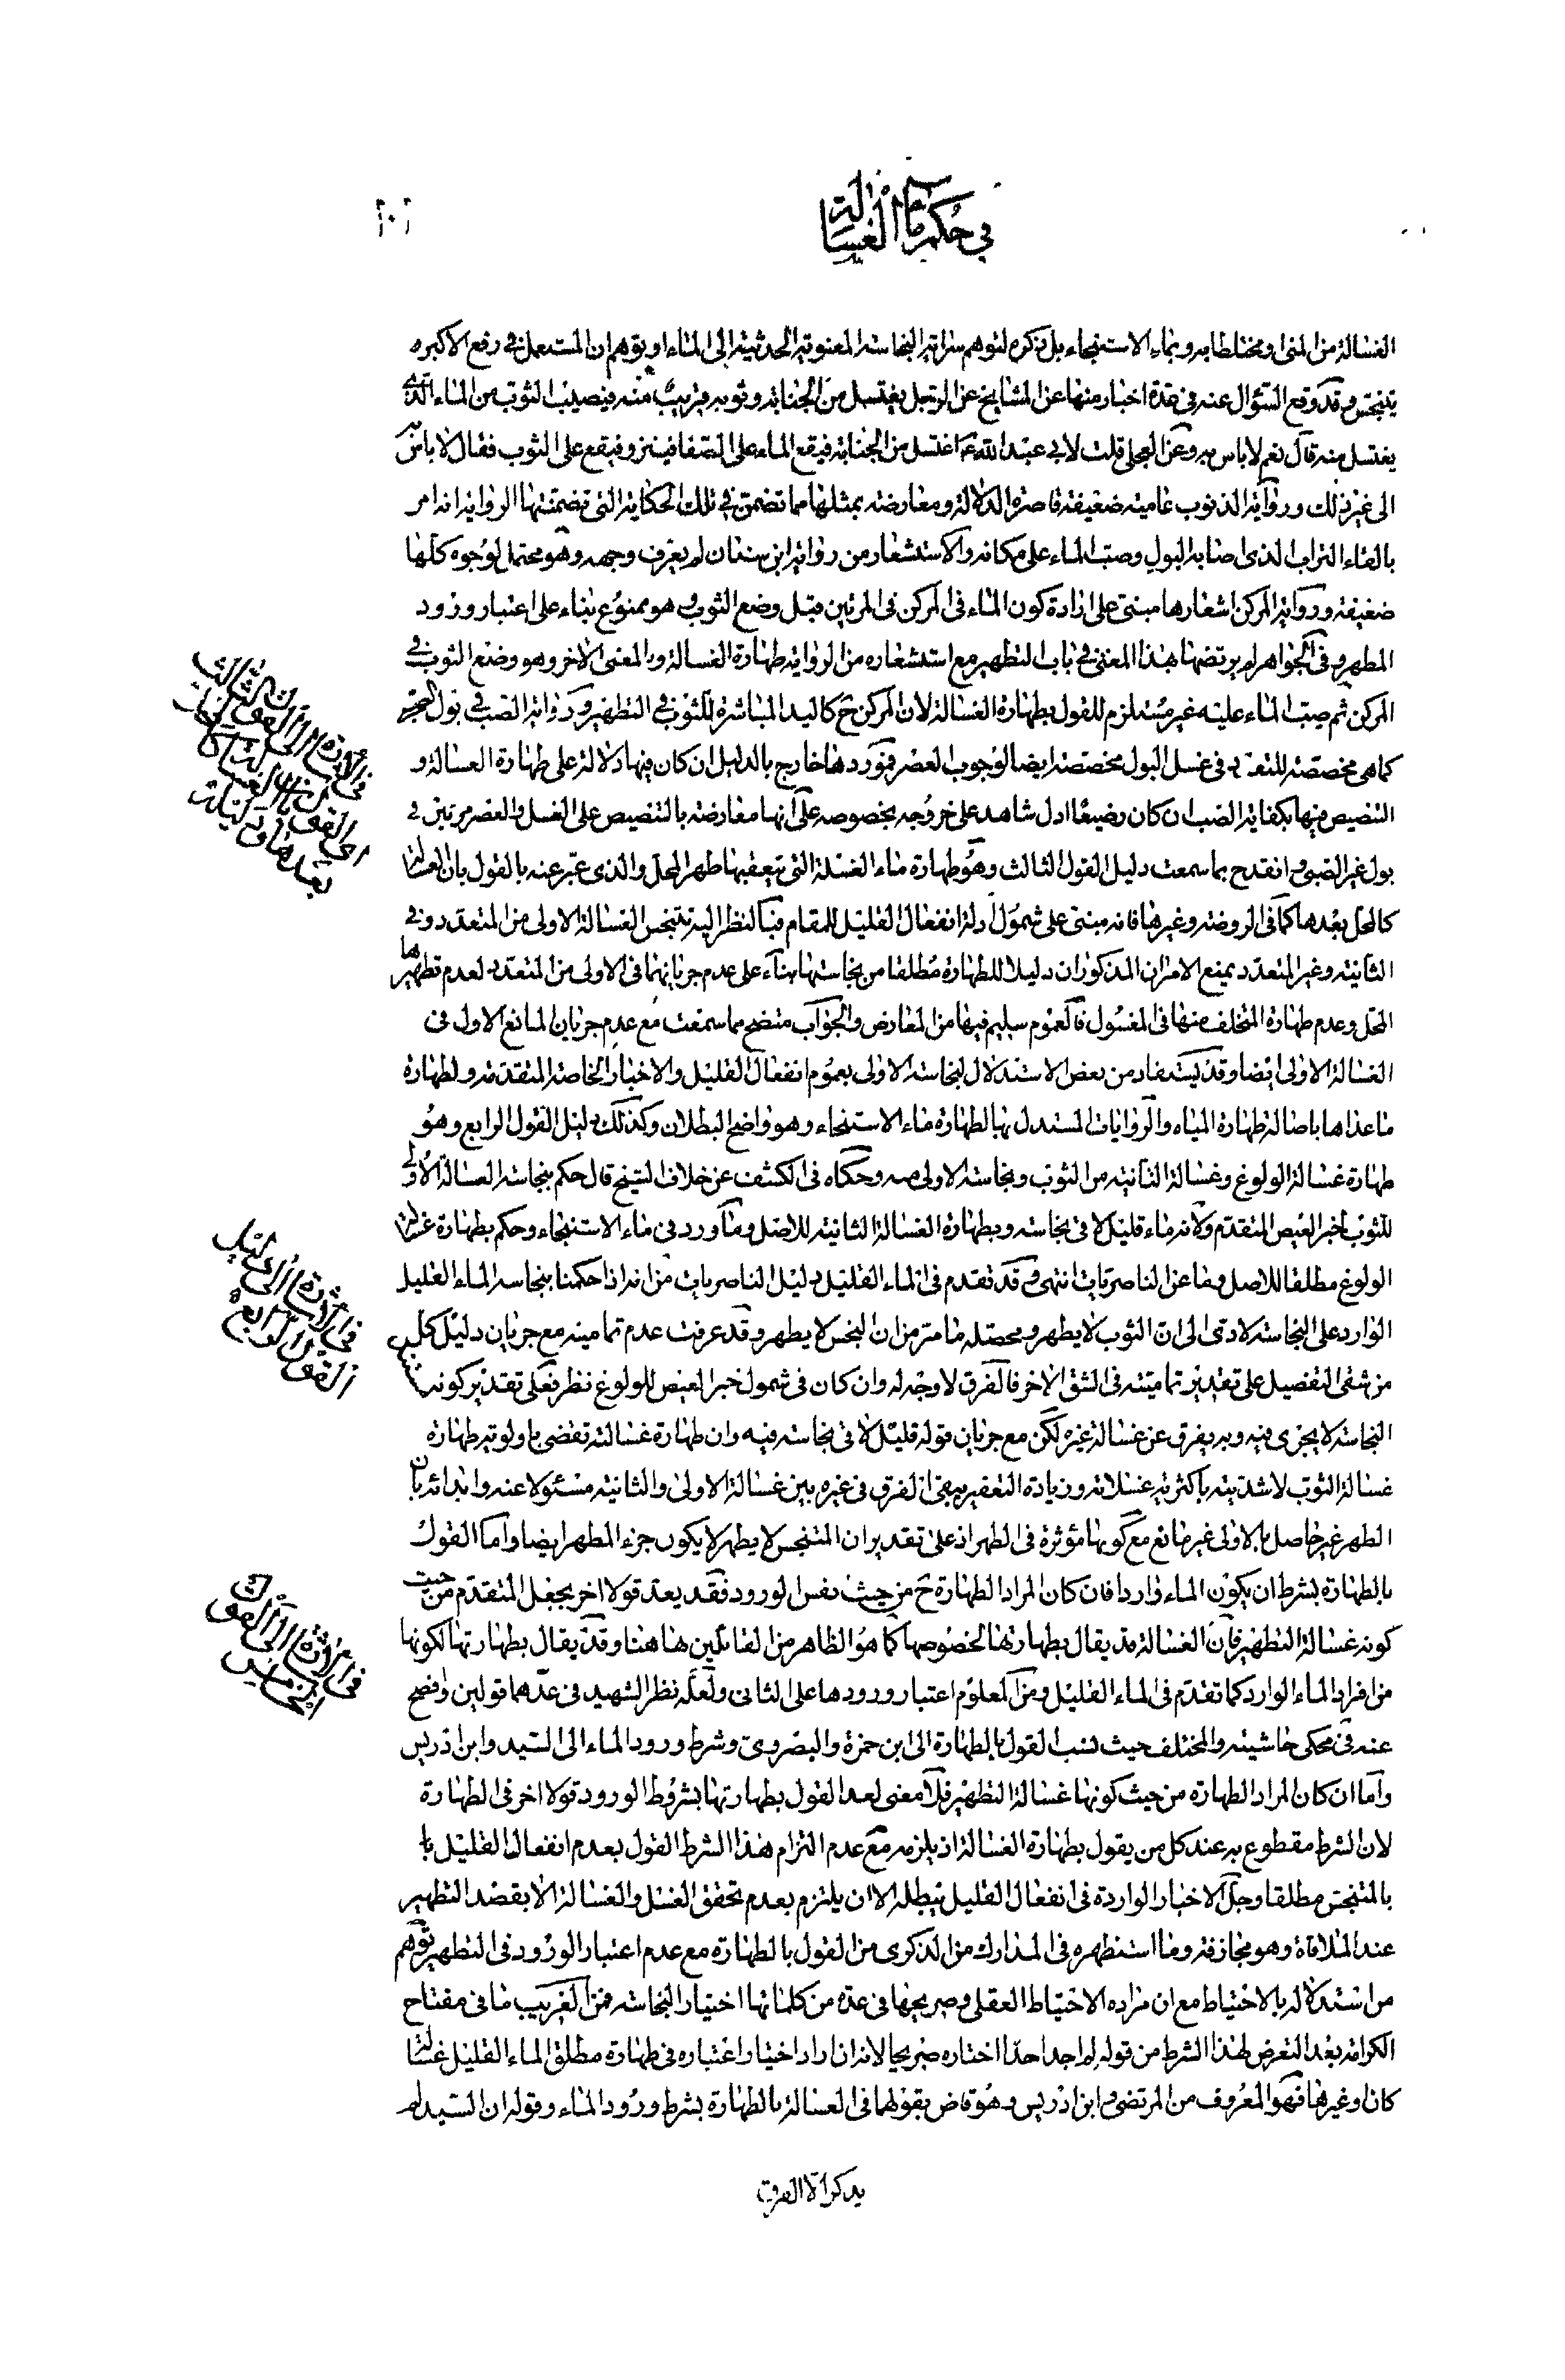 في حكم ماء الغسالة
الغسالة من المنى ومختلطا به وبماء الاستنجاء بل ذكره لتوهم سراية النجاسة المعنوية الحدثية الى الماء او توهم ان المستعمل في رفع الاكبر
يتنجس وقد وقع السؤال عنه في عدة اخبار منها عن المشايخ عن الرجل يغتسل من الجنابة وثوبه قريب منه فيصيب الثوب من الماء الذي
يغتسل منه قال نعم لا باس به وعن العجلي قلت لابي عبد الله ع اغتسل من الجنابة فيقع الماء على الصفا فينزو فيقع على الثوب فقال لا باس به
الى غير ذلك ورواية الذنوب عامية ضعيفة قاصرة الدلالة ومعارضة بمثلها مما تضمن في تلك الحكاية التي تضمنتها الرواية انه امر
بالقاء التراب الذي اصابه البول وصب الماء على مكانه والاستشعار من رواية ابن سنان لم يعرف وجهه وهو محتمل لوجوه كلها
ضعيفة ورواية المركن اشعارها مبنى على ارادة كون الماء في المركن في المرتين قبل وضع الثوب وهو ممنوع بناء على اعتبار ورود
المطهر وفي الجواهر لم يرتضها بهذا المعنى في باب التطهير مع استشعاره من الرواية طهارة الغسالة والمعنى الاخر وهو وضع الثوب في
المركن ثم صب الماء عليه غير مستلزم للقول بطهارة الغسالة لان المركن ح كاليد المباشرة للثوب في التطهير ورواية الصب في بول الصبي
كما هي مخصصة للتعدد في غسل البول مخصصة ايضا لوجوب العصر فموردها خارج بالدليل ان كان فيها دلالة على طهارة الغسالة و
التنصيص فيها بكفاية الصب ان كان رضيعا ادل شاهد على خروجه بخصوصه على انها معارضة بالتنصيص على الغسل والعصر مرتين في
بول غير الصبي وانقدح بما سمعت دليل القول الثالث وهو طهارة ماء الغسلة التي تتعقبها طهر المحل والذي عبر عنه بالقول بان الغسالة
كالمحل بعدها كما في الروضة وغيرها فانه مبنى على شمول ادلة انفعال القليل للمقام فبالنظر اليه تتنجس الغسالة الاولى من المتعدد وفي
الثانية وغير المتعدد يمنع الامران المذكوران دليلا للطهارة مطلقا من نجاستها بناء على عدم جريانهما في الاولى من المتعدد لعدم تطهيرها
المحل وعدم طهارة المتخلف منها في المغسول فالعموم سليم فيها من المعارض والجواب متضح مما سمعت مع عدم جريان المانع الاول في
الغسالة الاولى ايضا وقد يستفاد من بعض الاستدلال لنجاسة الاولى بعموم انفعال القليل والاخبار الخاصة المتقدمة ولطهارة
ما عداها باصالة طهارة المياه والروايات المستدل بها لطهارة ماء الاستنجاء وهو واضح البطلان وكذلك دليل القول الرابع وهو
طهارة غسالة الولوغ وغسالة الثانية من الثوب ونجاسة الاولى منه وحكاه في الكشف عن خلاف الشيخ قال حكم بنجاسة الغسالة الاولى
للثوب لخبر العيص المتقدم ولانه ماء قليل لاقى نجاسة وبطهارة الغسالة الثانية للاصل وما ورد في ماء الاستنجاء وحكم بطهارة غسالة
الولوغ مطلقا للاصل وما عن الناصريات انتهى وقد تقدم في الماء القليل دليل الناصريات من انه اذا حكمنا بنجاسة الماء القليل
الوارد على النجاسة لادى الى ان الثوب لا يطهر ومحصله ما مر من ان النجس لا يطهر وقد عرفت عدم تماميته مع جريان دليل كل
من شقى التفصيل على تقدير تماميته في الشق الاخر فالفرق لا وجه له وان كان في شمول خبر العيص للولوغ نظر فعلى تقدير كونه
النجاسة لا يجزى فيه وبه يفرق عن غسالة غيره لكن مع جريان قوله قليل لاقى نجاسة فيه وان طهارة غسالته تقضي باولوية طهارة
غسالة الثوب لاشديته باكثرية غسلاته وزيادة التعفير يبقى الفرق في غيره بين غسالة الاولى والثانية مسئولا عنه وابدائه بان
الطهر غير حاصل بالاولى غير مانع مع كونها مؤثرة في الطهر اذ على تقدير ان المتنجس لا يطهر لا يكون جزء المطهر ايضا واما القول
بالطهارة بشرط ان يكون الماء واردا فان كان المراد الطهارة ح من حيث نفس الورود فقد يعد قولا اخر يجعل المتقدم من حيث
كونه غسالة التطهير فان الغسالة قد يقال بطهارتها لخصوصها كما هو الظاهر من القائلين ها هنا وقد يقال بطهارتها لكونها
من افراد الماء الوارد كما تقدم في الماء القليل ومن المعلوم اعتبار ورودها على الثاني ولعله نظر الشهيد في عدهما قولين وافصح
عنه في محكى حاشيته والمختلف حيث نسب القول بالطهارة الى ابن حمزة والبصروي وشرط ورود الماء الى السيد وابن ادريس
واما ان كان المراد الطهارة من حيث كونها غسالة التطهير فلا معنى لعد القول بطهارتها بشروط الورود قولا اخر في الطهارة
لان الشرط مقطوع به عند كل من يقول بطهارة الغسالة اذ يلزمه مع عدم التزام هذا الشرط القول بعدم انفعال القليل با
بالمتنجس مطلقا وجل الاخبار الواردة في انفعال القليل تبطله الا ان يلتزم بعدم تحقق الغسل والغسالة الا بقصد التطهير
عند الملاقاة وهو مجازفة وما استظهره في المدارك من الذكرى من القول بالطهارة مع عدم اعتبار الورود في التطهير توهم
من استدلاله بالاحتياط مع ان مراده الاحتياط العقلى وصريحها في عدة من كلماتها اختيار النجاسة فمن الغريب ما في مفتاح
الكرامة بعد التعرض لهذا الشرط من قوله لم اجد احدا اختاره صريحا لانه ان اراد اختيار اعتباره في طهارة مطلق الماء القليل غسالة
كان او غيرها فهو المعروف من المرتضى وابن ادريس وهو قاض بقولهما في الغسالة بالطهارة بشرط ورود الماء وقوله ان السيد لم
يذكر الا الفرق
في الاشارة الى القول الثالث
اي القول بان الغسالة كالمحل
بعدها ودليله
في الاشارة الى دليل
القول الرابع
في الاشارة الى القول
الخامس